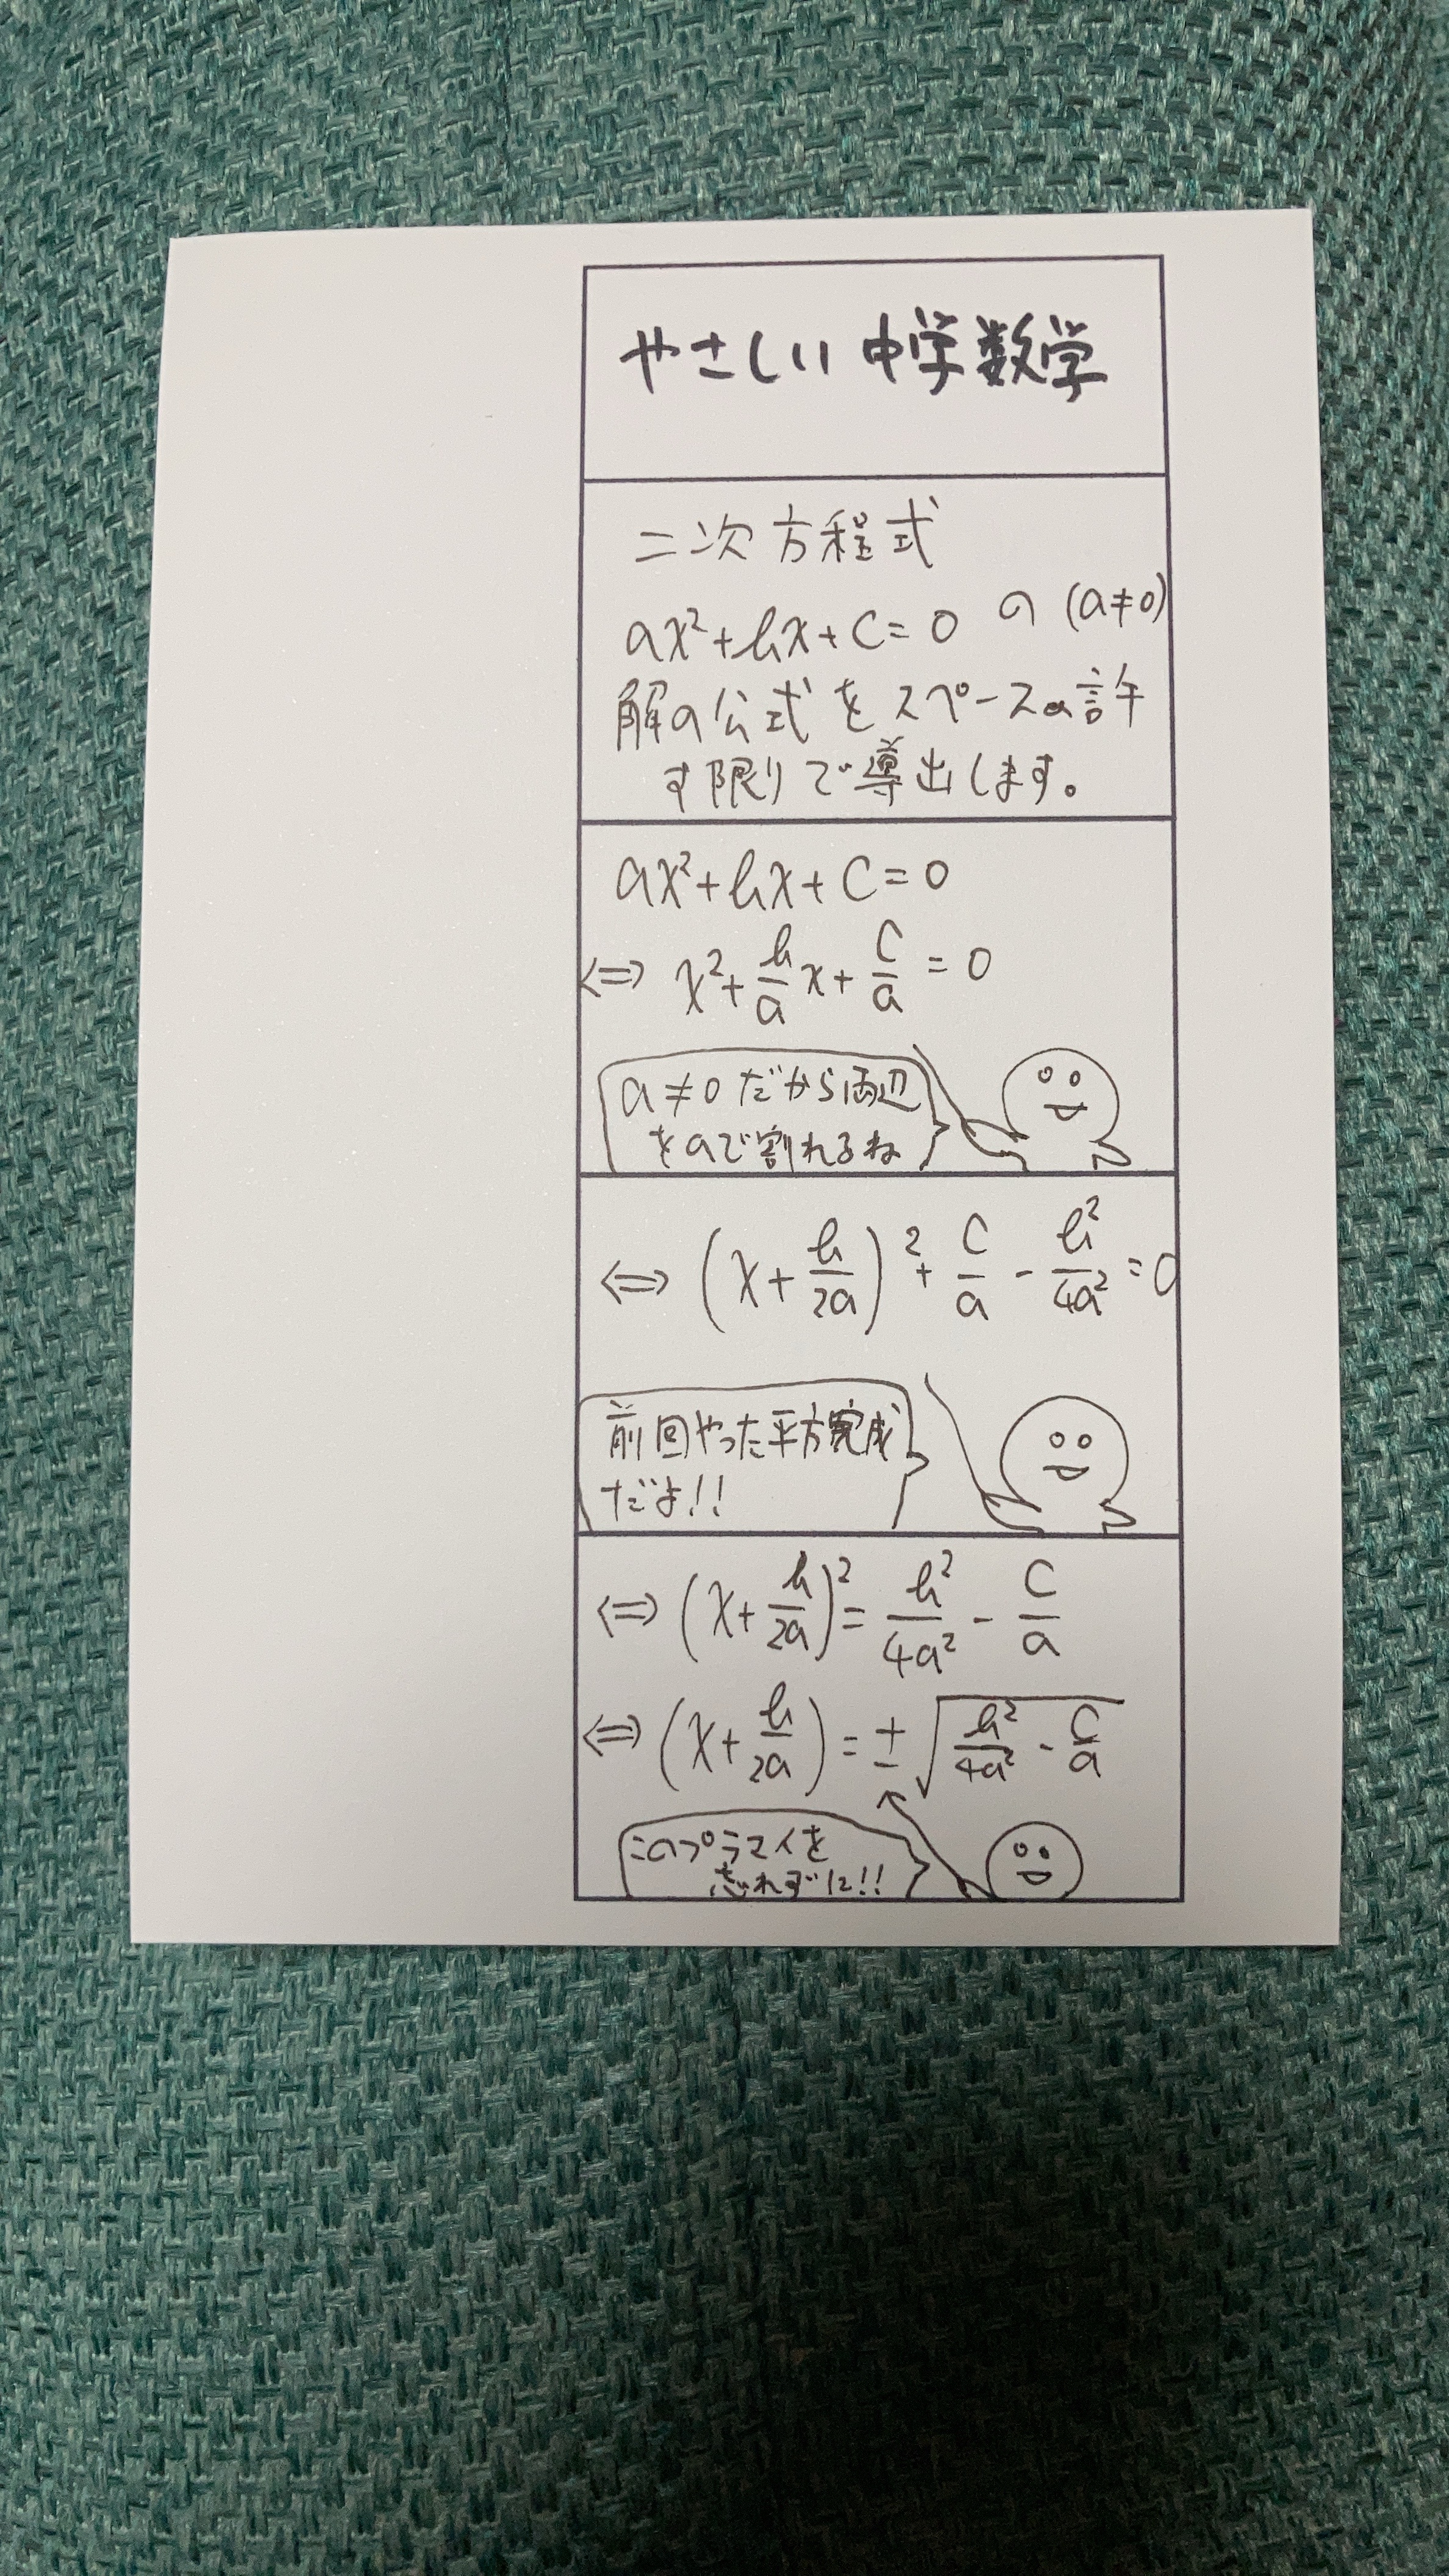 やさしい中学数学
二次方程式
ax²+bx+c=0 の (a≠0)
解の公式をスペースの許
す限りで導出します。
ax²+bx+c=0
⇔ x²+b/a x+c/a=0
a≠0だから両辺
をaで割れるね
⇔ (x+b/2a)²+c/a-b²/4a²=0
前回やった平方完成
だよ!!
⇔ (x+b/2a)²=b²/4a²-c/a
⇔ (x+b/2a)=±√(b²/4a²-c/a)
このプラマイを
忘れずに!!